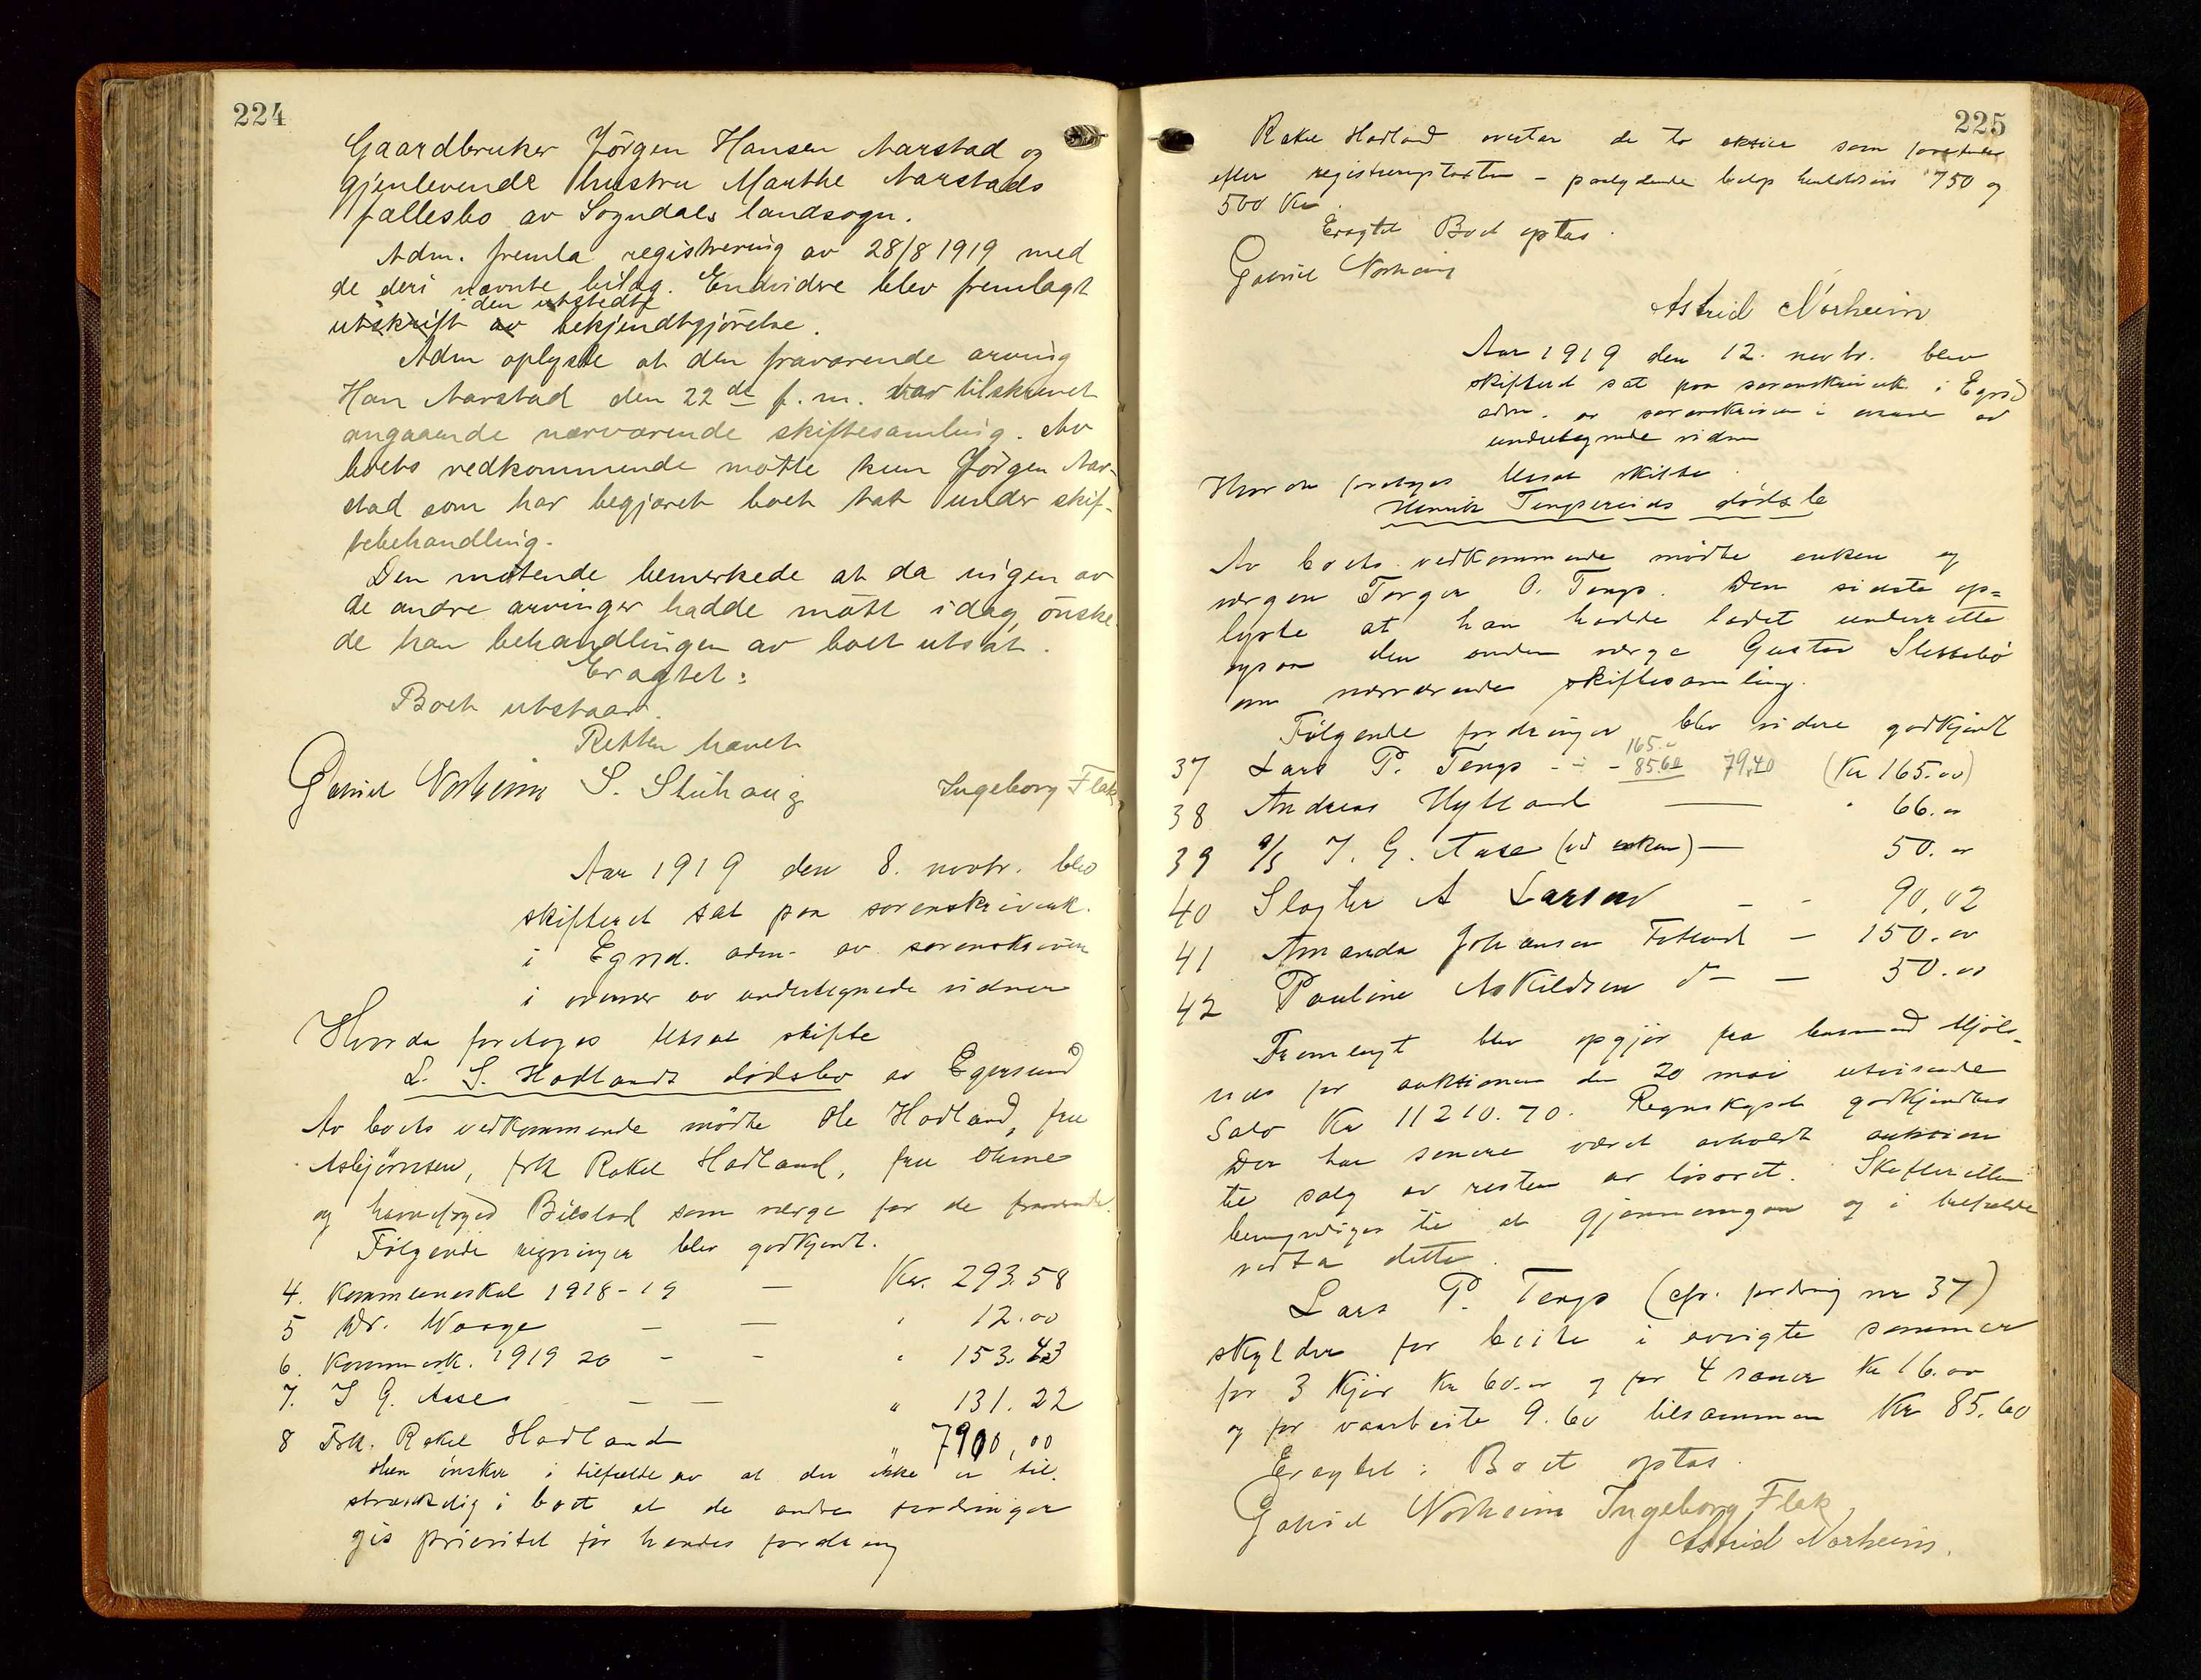 224
Gaardbruker Jörgen Hansen Aarstad og
gjenlevende hustru Marthe Aarstads
fællesbo av Sogndals landsogn.
Adm. fremla registrering av 28/8 1919 med
de deri nævnte bilag. Endvidre blev fremlagt
den utstedte
utskrift av bekjendtgjörelse.
Adm oplyste at den fraværende arving
Han Aarstad den 22de f. m. var tilskrevet
angaaende nærværende skiftesamling. Av
boets vedkommende møtte kun Jørgen Aar-
stad som har begjæret boet tat under skif-
tebehandling.
Den møtende bemerkede at da ingen av
de andre arvinger hadde møtt idag, önske-
de han behandlingen av boet utsat.
Eragtet:
Boet utstaar.
Retten hævet
Gabriel Norheim S. Stuhaug Ingeborg Flak
Aar 1919 den 8. novbr. blev
skifteret sat paa sorenskriverk.
i Egrsd. adm. av sorenskriveren
i overvær av undertegnede vidner
Hvorda foretoges Utsat skifte
L. S. Hadlands dödsbo av Egersund
Av boets vedkommende mödte Ole Hadland, fru
Asbjörnsen, frk Rakel Hadland, fru Ohme
og havnefoged Bilstad som værge for de fraværende.
Følgende regninger blev godkjendt.
4. Kommuneskat 1918-19 — Kr. 293.58
5 Dr. Waage — — " 12.00
6. Kommunesk. 1919 20 - - " 153.43
7. I G. Aase — — " 131.22
8 Frk. Rakel Hadland " 7900,00
Hun önsker i tilfælde av at der ikke er til-
strækkelig i boet at de andre fordringer
gis prioritet før hendes fordring
225
Rakel Hadland overtar de to aktier som
efter registreringstaksten - paalydende beløp henholdsvis 750 og
500 Kr.
Eragtet Boet optas.
Gabriel Norheim
Astrid Norheim
Aar 1919 den 12. novbr. blev
skifteret sat paa sorenskriverk. i Egrsd
adm. av sorenskriveren i overvær av
undertegnede vidner
Hvorda foretoges Utsat skifte
Henrik Tengsereids dödsbo
Av boets vedkommende mödte enken og
værgen Torger O. Tengs. Den sidste op=
lyste at han hadde ladet underrette
ogsaa den anden værge Gustav Slettebö
om nærværende skiftesamling.
Følgende fordringer blev videre godkjendt
165.-
37 Lars P. Tengs - - - 85.60 79.40 (Kr 165.00)
38 Andreas Hylland — " 66.00
39 A/S I. G. Aase (ved enken) — 50.00
40 Slagter A Larsen - - 90.02
41 Amanda Johansen Fotland - 150.00
42 Pauline Askildsen do - 50.00
Fremlagt blev opgjör fra lensmand Mjöls-
nes for auktionen den 20 mai utvisende
Salo Kr 11210.70. Regnskapet godkjendtes
Der har senere været avholdt auktion
til salg av resten av lösöret. Skifteretten
bemyndiges til at gjennemgaa og i tilfælde
vedta dette.
Lars P. Tengs (cfr. fordring nr 37)
skylder for beite i avvigte sommer
for 3 kjör Kr 60.00 og for 4 sauer Kr 16.00
og for vaarbeite 9.60 tilsammen Kr 85.60
Eragtet: Boet optas.
Gabriel Norheim Ingeborg Flak
Astrid Norheim.